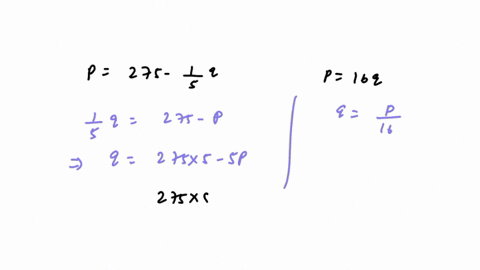 P = 275 - 1/5 q
1/5 q = 275 - P
⇒ q = 275×5 - 5P
275×5
P = 16q
q = P/16